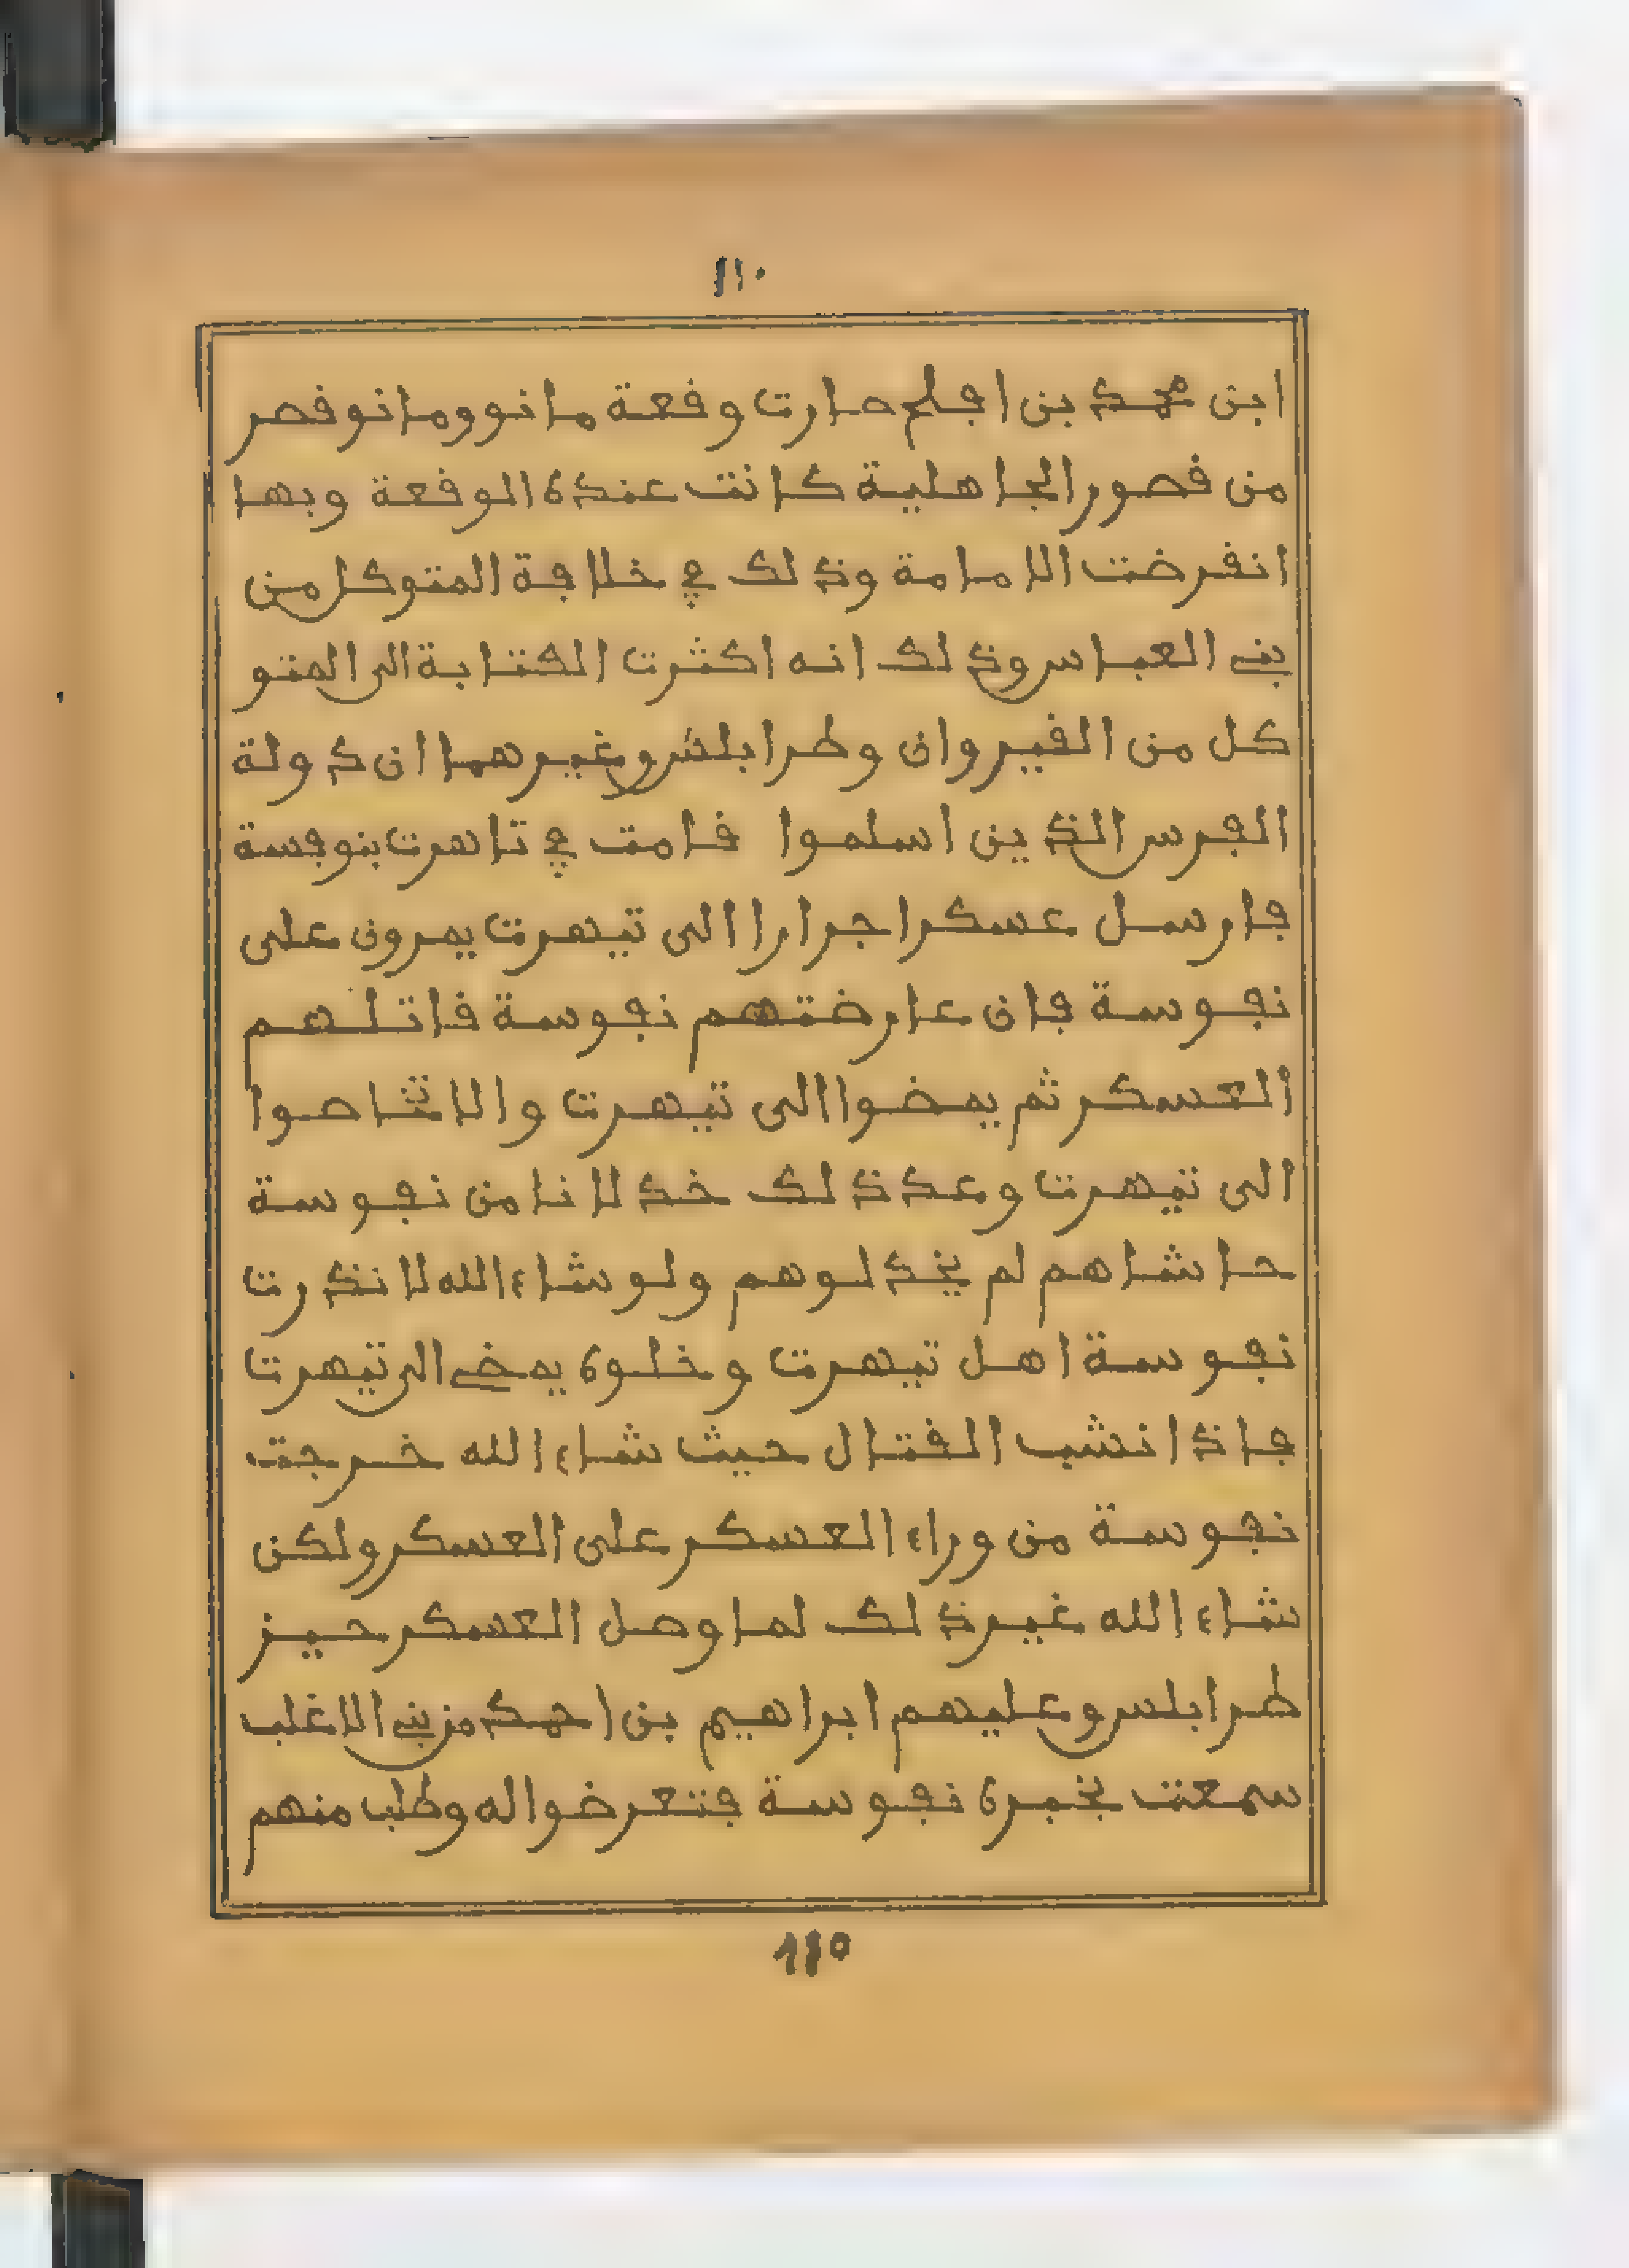 ١١٠
ابن محمد بن افلح صارت وقعة مانو ومانو قصر
من قصور الجاهلية كانت عنده الوقعة وبها
انقرضت الامامة وذلك في خلافة المتوكل من
بني العباس وذلك انه اكثرت الكتابة الى المتو
كل من القيروان وطرابلس وغيرهما ان دولة
الفرس الذين اسلموا قامت في تاهرت بنوفسة
فارسل عسكرا جرارا الى تيهرت يمرون على
نفوسة فان عارضتهم نفوسة قاتلهم
العسكر ثم يمضوا الى تيهرت والا خاصوا
الى تيهرت وعد ذلك خدلانا من نفوسة
حاشاهم لم يخدلوهم ولو شاء الله لانذرت
نفوسة اهل تيهرت وخلوه يمضي الى تيهرت
فاذا نشب القتال حيث شاء الله خرجت
نفوسة من وراء العسكر على العسكر ولكن
شاء الله غير ذلك لما وصل العسكر حيز
طرابلس وعليهم ابراهيم بن احمد من بني الاغلب
سمعت بخبره نفوسة فتعرضوا له وطلب منهم
110